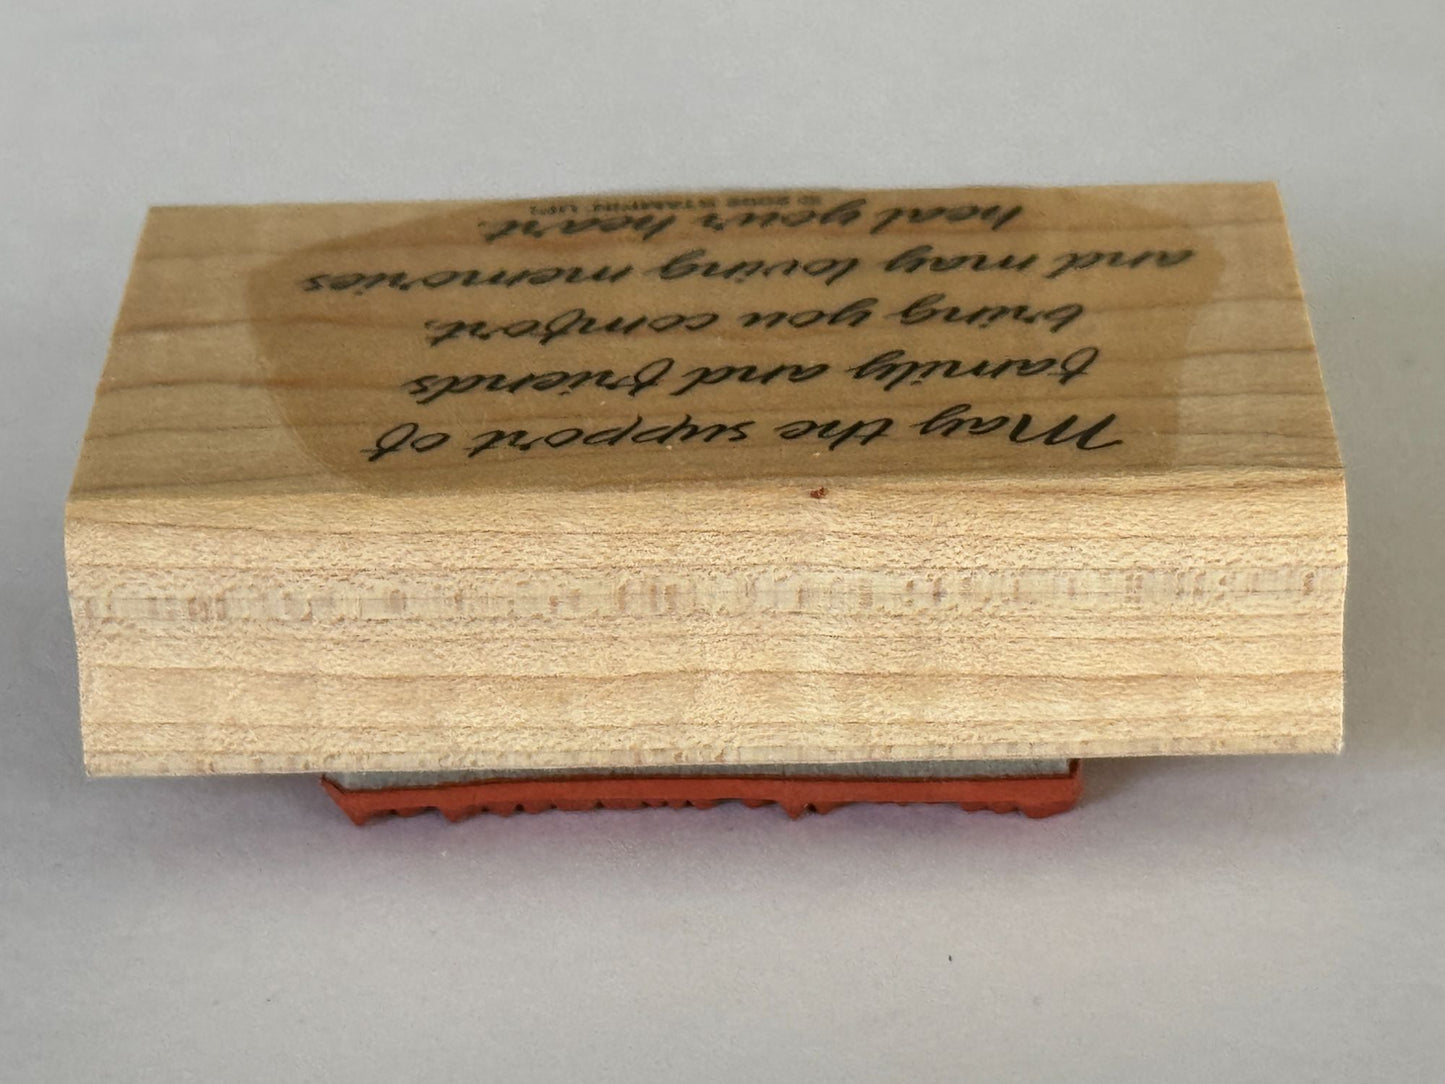 May the support of
family and friends
bring you comfort,
and may loving memories
heal your heart.
© 2002 STAMPIN' UP!